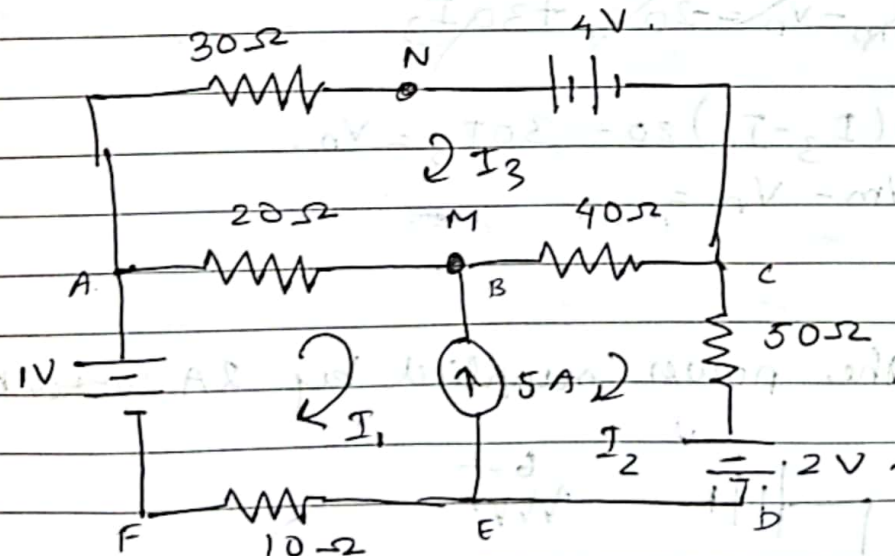 30Ω N 4V.
I₃
20Ω M 40Ω
A B C
50Ω
1V 5A
I₁ I₂ 2V
F 10Ω E D